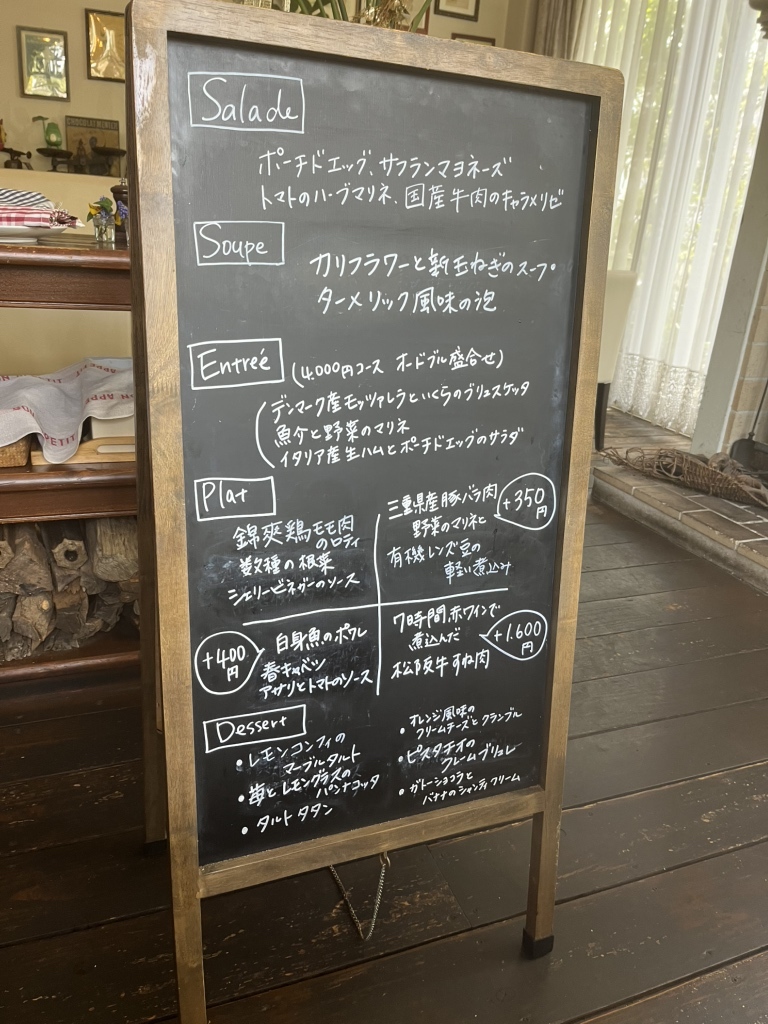 Salade
ポーチドエッグ、サフランマヨネーズ
トマトのハーブマリネ、国産牛肉のキャラメリゼ
Soupe
カリフラワーと新玉ねぎのスープ
ターメリック風味の泡
Entreé
(4.000円コース オードブル盛合せ)
デンマーク産モッツァレラといくらのブリュスケッタ
魚介と野菜のマリネ
イタリア産生ハムとポーチドエッグのサラダ
Plat
錦爽鶏モモ肉
のロティ
数種の根菜
シェリービネガーのソース
三重県産豚バラ肉
野菜のマリネと
有機レンズ豆の
軽い煮込み
+350
円
+400
円
白身魚のポワレ
春キャベツ
アサリとトマトのソース
7時間赤ワインで
煮込んだ
松阪牛すね肉
+1.600
円
Dessert
・レモンコンフィの
マーブルタルト
・苺とレモングラスの
パンナコッタ
・タルトタタン
・オレンジ風味の
クリームチーズとクランブル
・ピスタチオの
クレームブリュレ
・ガトーショコラと
バナナのシャンティクリーム